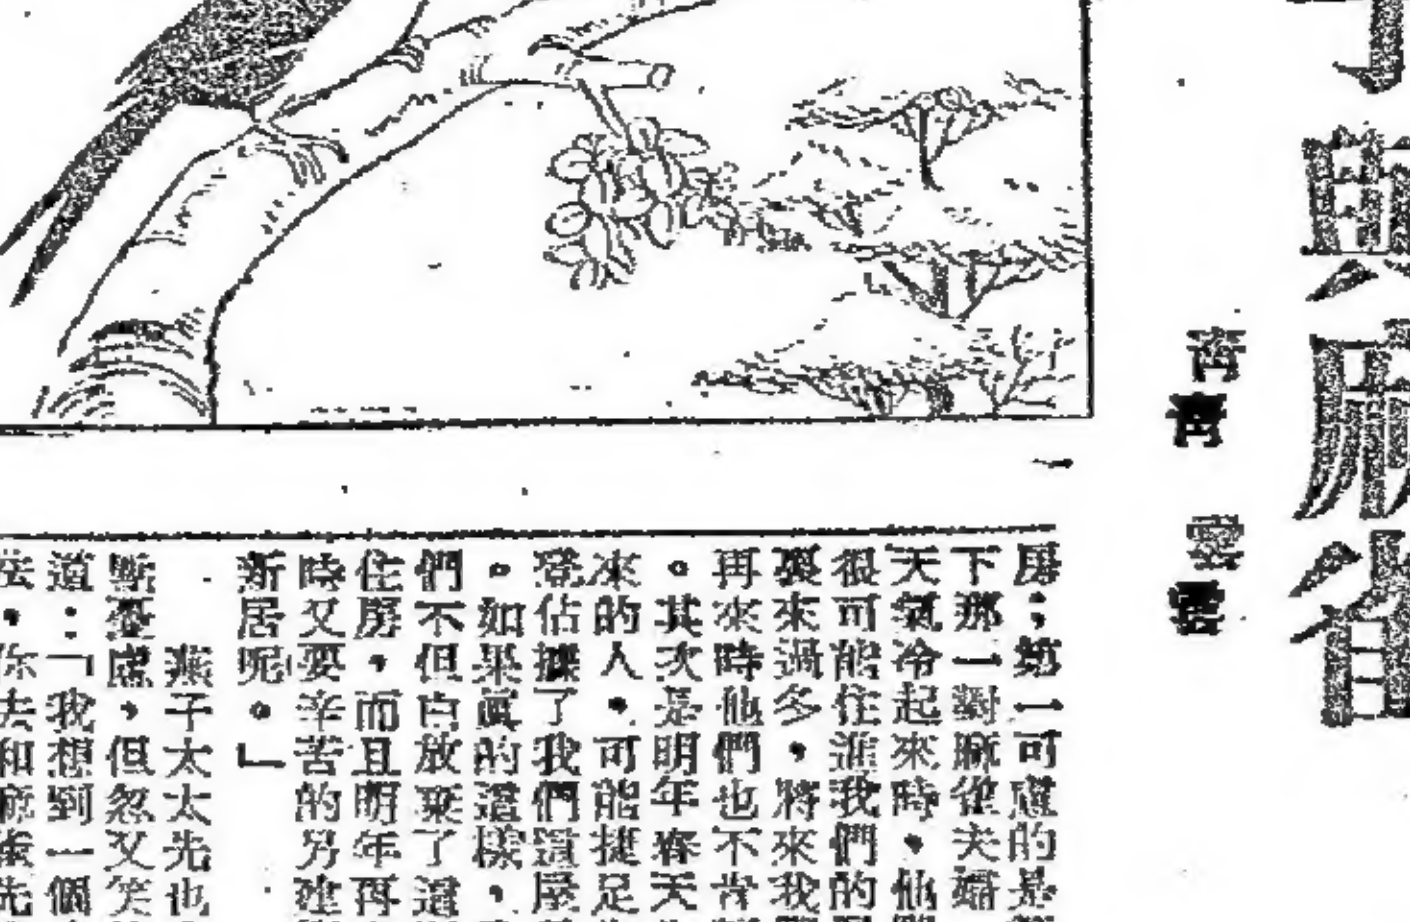 子與麻雀
靑靑
雲雲
房；第一可慮的是
下那一對麻雀夫婦
天氣冷起來時，他
很可能住進我們的
裏來過多，將來我
再來時他們也不肯
。其次是明年春天
來的人，可能捷足
登佔據了我們這屋
。如果眞的這樣，
們不但白放棄了這
住房，而且明年再
時又要辛苦的另建
新居呢。」
燕子太太先也
點憂慮，但忽又笑
道：「我想到一個
法，你去和麻雀先